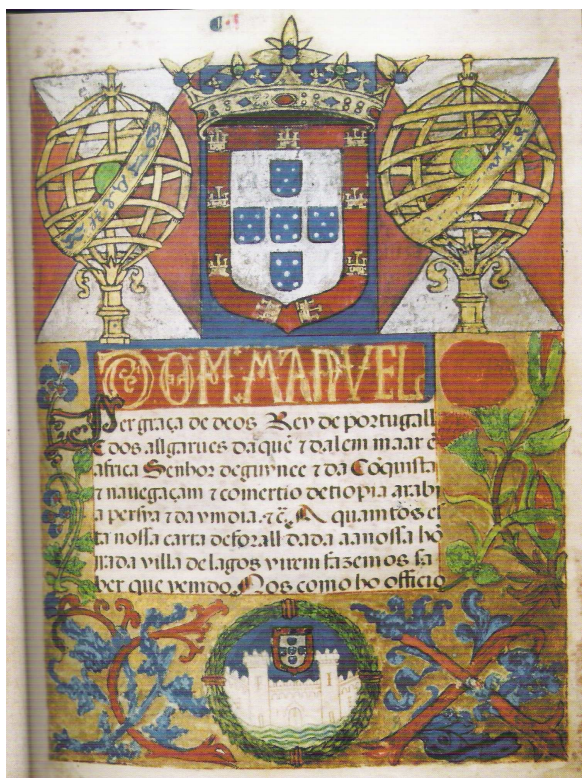 DOM MANVEL
Per graça de deos Rey de portugall
E dos allgarues daquẽ ⁊ dalem maar ẽ
africa Senhor deguynee ⁊ da Cõquista
⁊ nauegaçam ⁊ comertio detiopia araby
a persya ⁊ da yndia. ⁊c̃. A quamtos es
ta nossa carta deforall dada aanossa hõ
rrada villa delagos virem fazemos sa
ber que vemdo Nos como ho officio